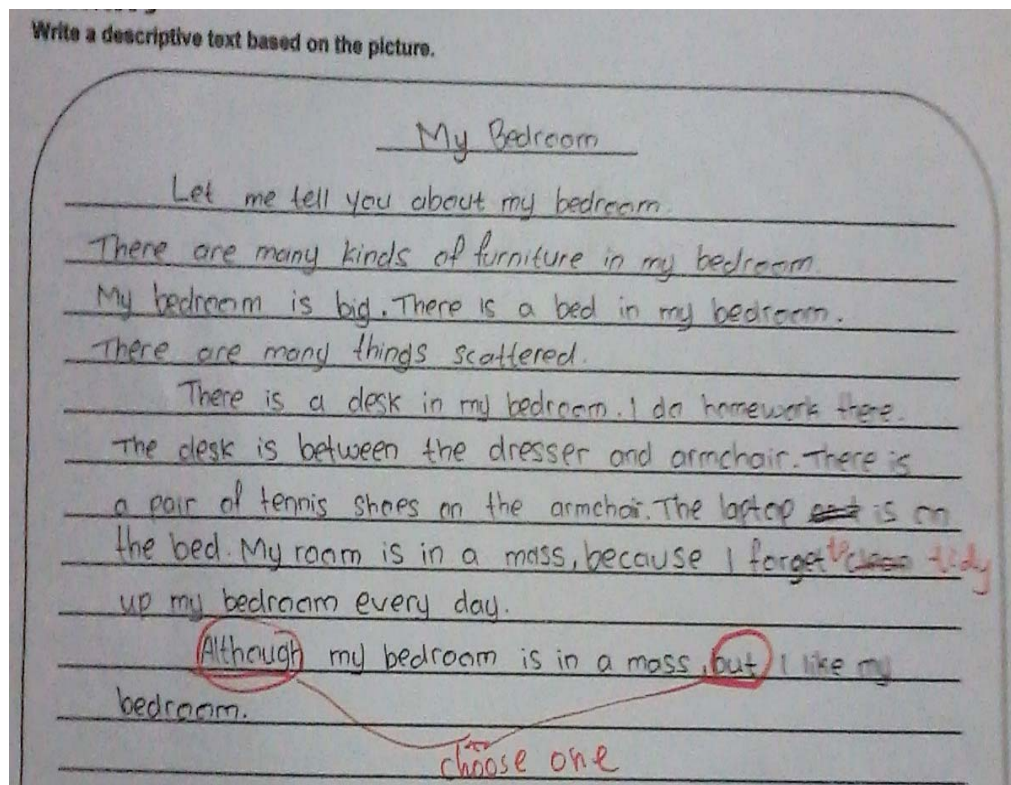 Write a descriptive text based on the picture.
My Bedroom
Let me tell you about my bedroom.
There are many kinds of furniture in my bedroom.
My bedroom is big. There is a bed in my bedroom.
There are many things scattered.
There is a desk in my bedroom. I do homework there.
The desk is between the dresser and armchair. There is
a pair of tennis shoes on the armchair. The laptop is on
the bed. My room is in a mass, because I forget to tidy
up my bedroom every day.
Although my bedroom is in a mass, but I like my
bedroom.
choose one